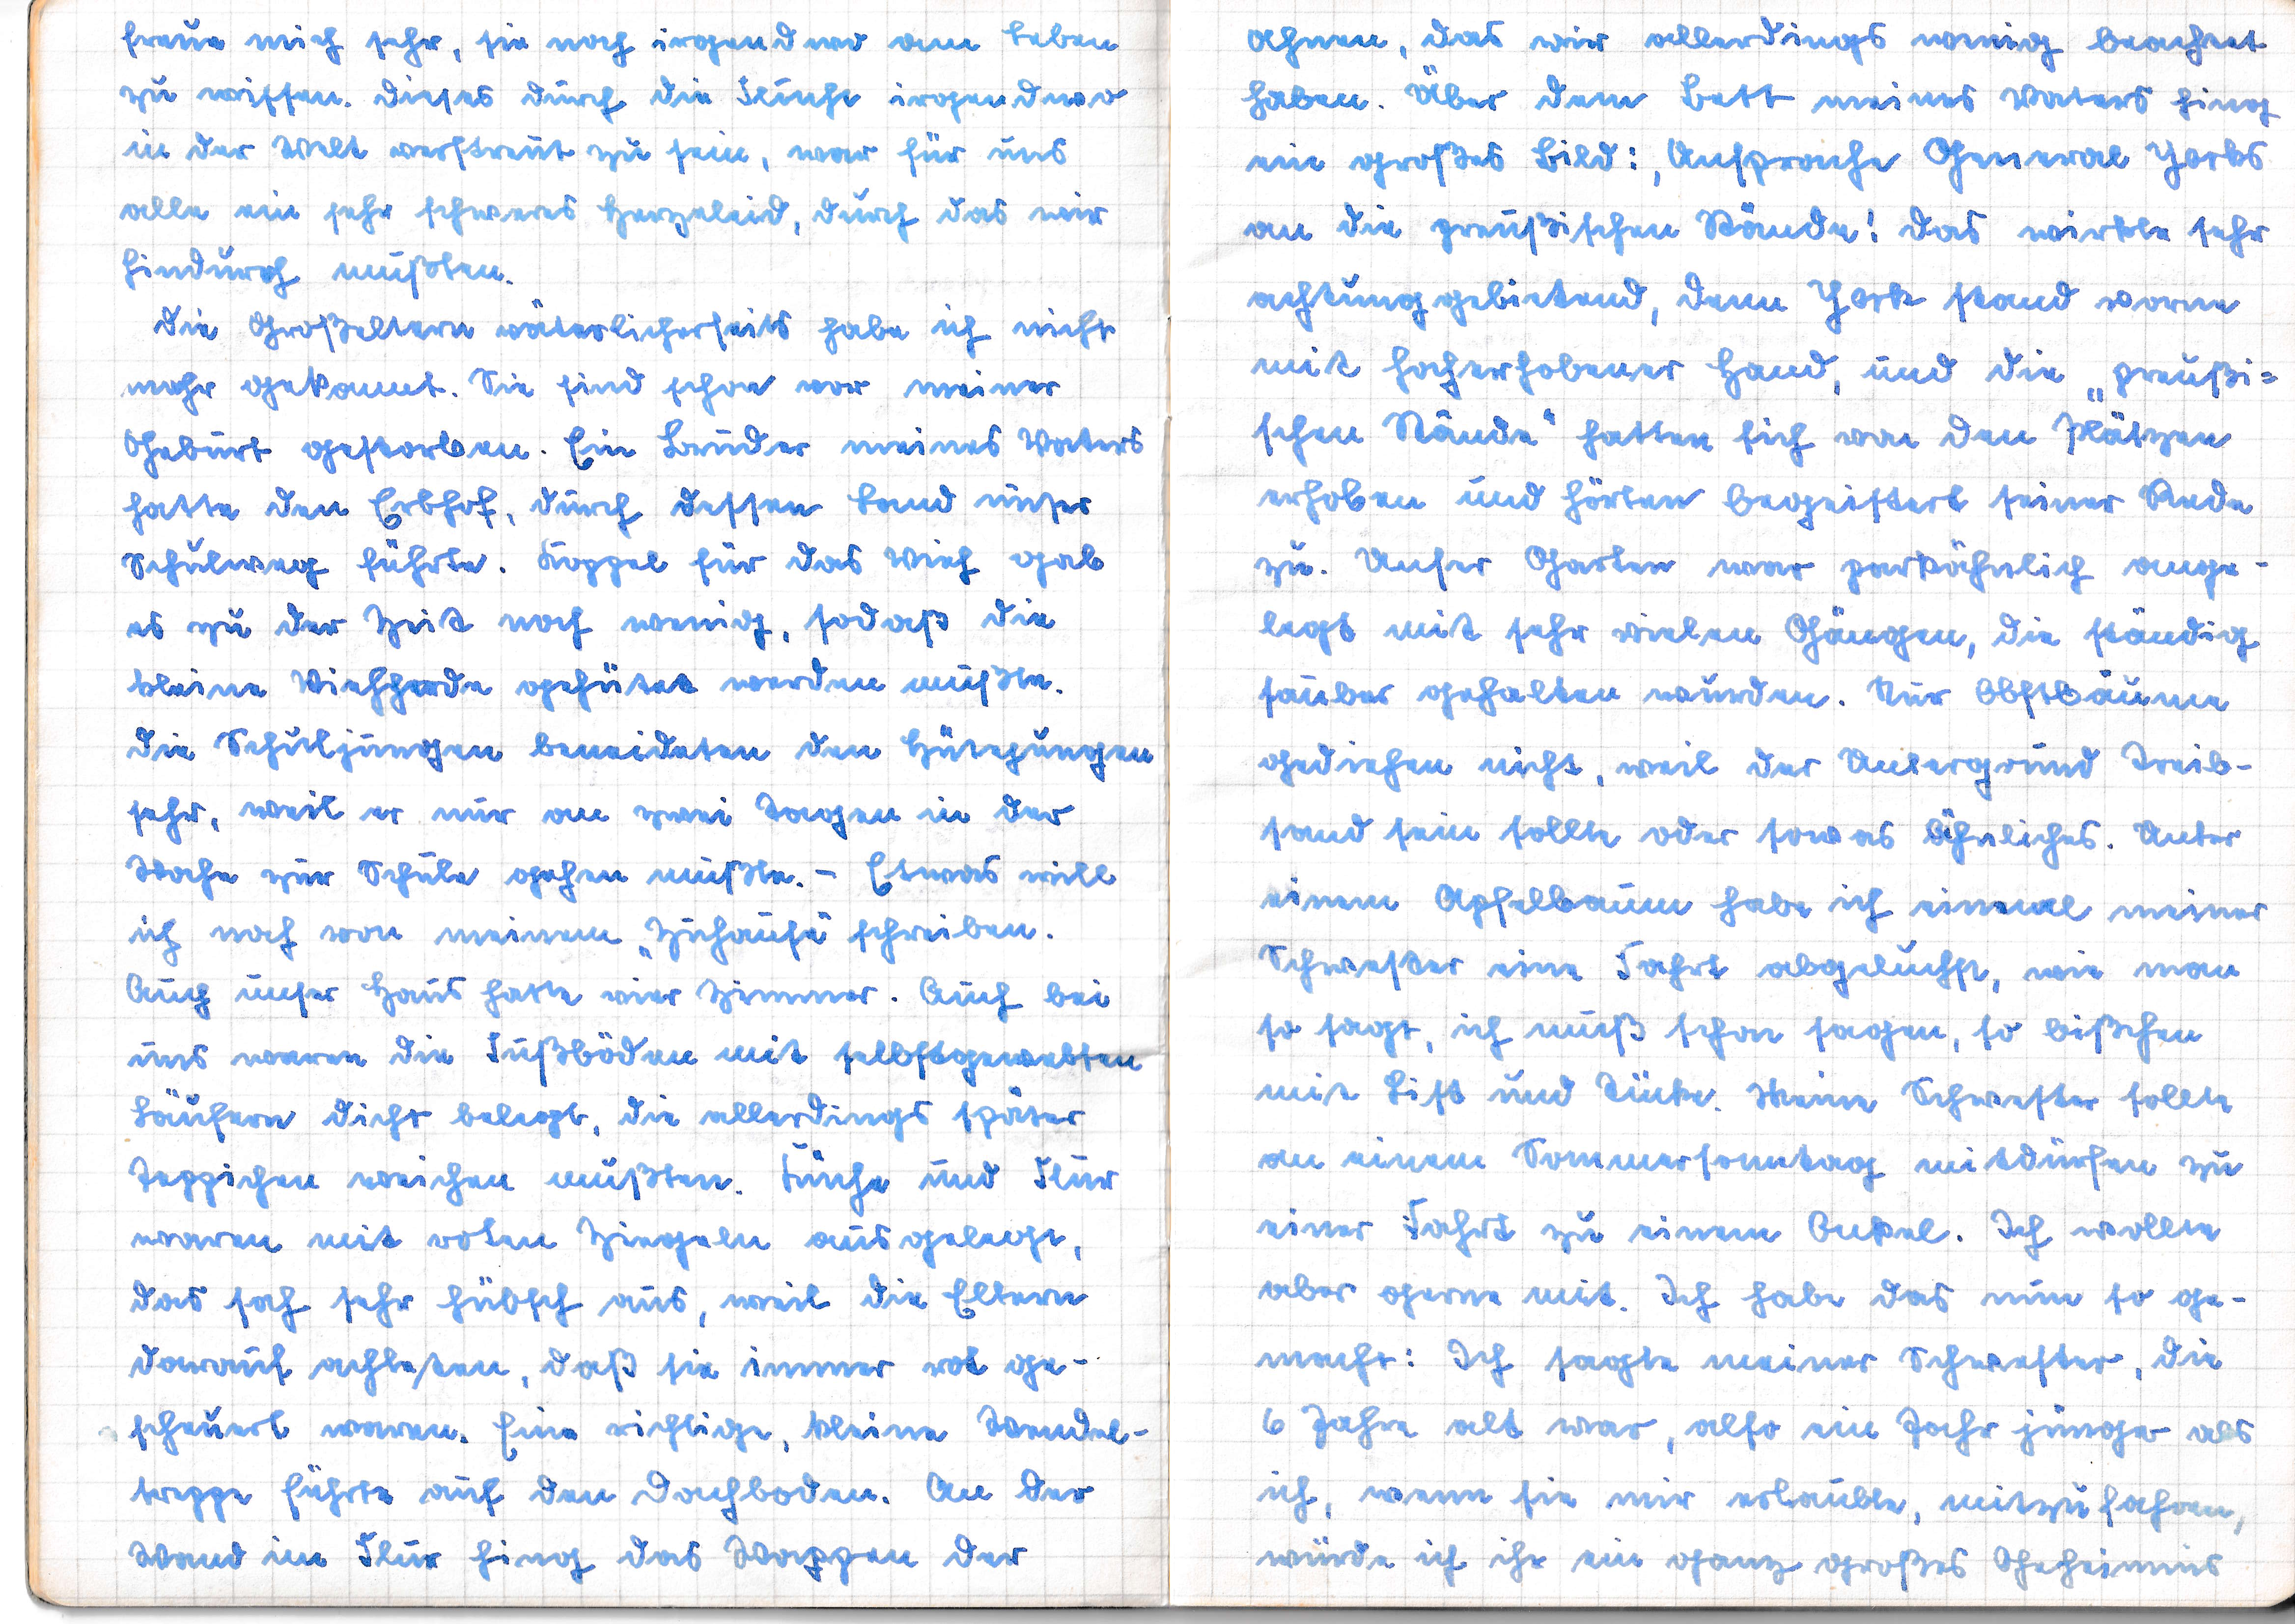 freue mich sehr, sie noch irgendwo am Leben
zu wissen. Dieses durch die Flucht irgendwo
in der Welt verstreut zu sein, war für uns
alle ein sehr schweres Herzeleid, durch das wir
hindurch mußten.
Die Großeltern väterlicherseits habe ich nicht
mehr gekannt. Sie sind schon vor meiner
Geburt gestorben. Ein Bruder meines Vaters
hatte den Erbhof, durch dessen Land unser
Schulweg führte. Koppel für das Vieh gab
es zu der Zeit noch wenig, sodaß die
kleine Viehherde gehütet werden mußte.
Die Schuljungen beneideten den Hütejungen
sehr, weil er nur an zwei Tagen in der
Woche zur Schule gehen mußte. – Etwas will
ich noch von meinem „Zuhause" schreiben.
Auch unser Haus hatte vier Zimmer. Auch bei
uns waren die Fußböden mit selbstgewebten
Läufern dicht belegt, die allerdings später
Teppichen weichen mußten. Küche und Flur
waren mit roten Ziegeln ausgelegt,
das sah sehr hübsch aus, weil die Eltern
darauf achteten, daß sie immer rot ge-
scheuert waren. Eine richtige, kleine Wendel-
treppe führte auf den Dachboden. An der
Wand im Flur hing das Wappen der
Ahnen, das wir allerdings wenig beachtet
haben. Über dem Bett meines Vaters hing
ein großes Bild: „Ansprache General Yorks
an die preußischen Stände! Das wirkte sehr
achtunggebietend, denn York stand vorne
mit hocherhobener Hand, und die „preußi=
schen Stände" hatten sich von den Plätzen
erhoben und hörten begeistert seiner Rede
zu. Unser Garten war parkähnlich ange-
legt mit sehr vielen Gängen, die ständig
sauber gehalten wurden. Nur Obstbäume
gediehen nicht, weil der Untergrund Treib-
sand sein sollte oder sowas Ähnliches. Unter
einem Apfelbaum habe ich einmal meiner
Schwester eine Fahrt abgeluchst, wie man
so sagt, ich muß schon sagen, so bißchen
mit List und Tücke. Meine Schwester sollte
an einem Sommersonntag mitdürfen zu
einer Fahrt zu einem Onkel. Ich wollte
aber gerne mit. Ich habe das nun so ge-
macht: Ich sagte meiner Schwester, die
6 Jahre alt war, also ein Jahr jünger als
ich, wenn sie mir erlaubte, mitzufahren,
würde ich ihr ein ganz großes Geheimnis